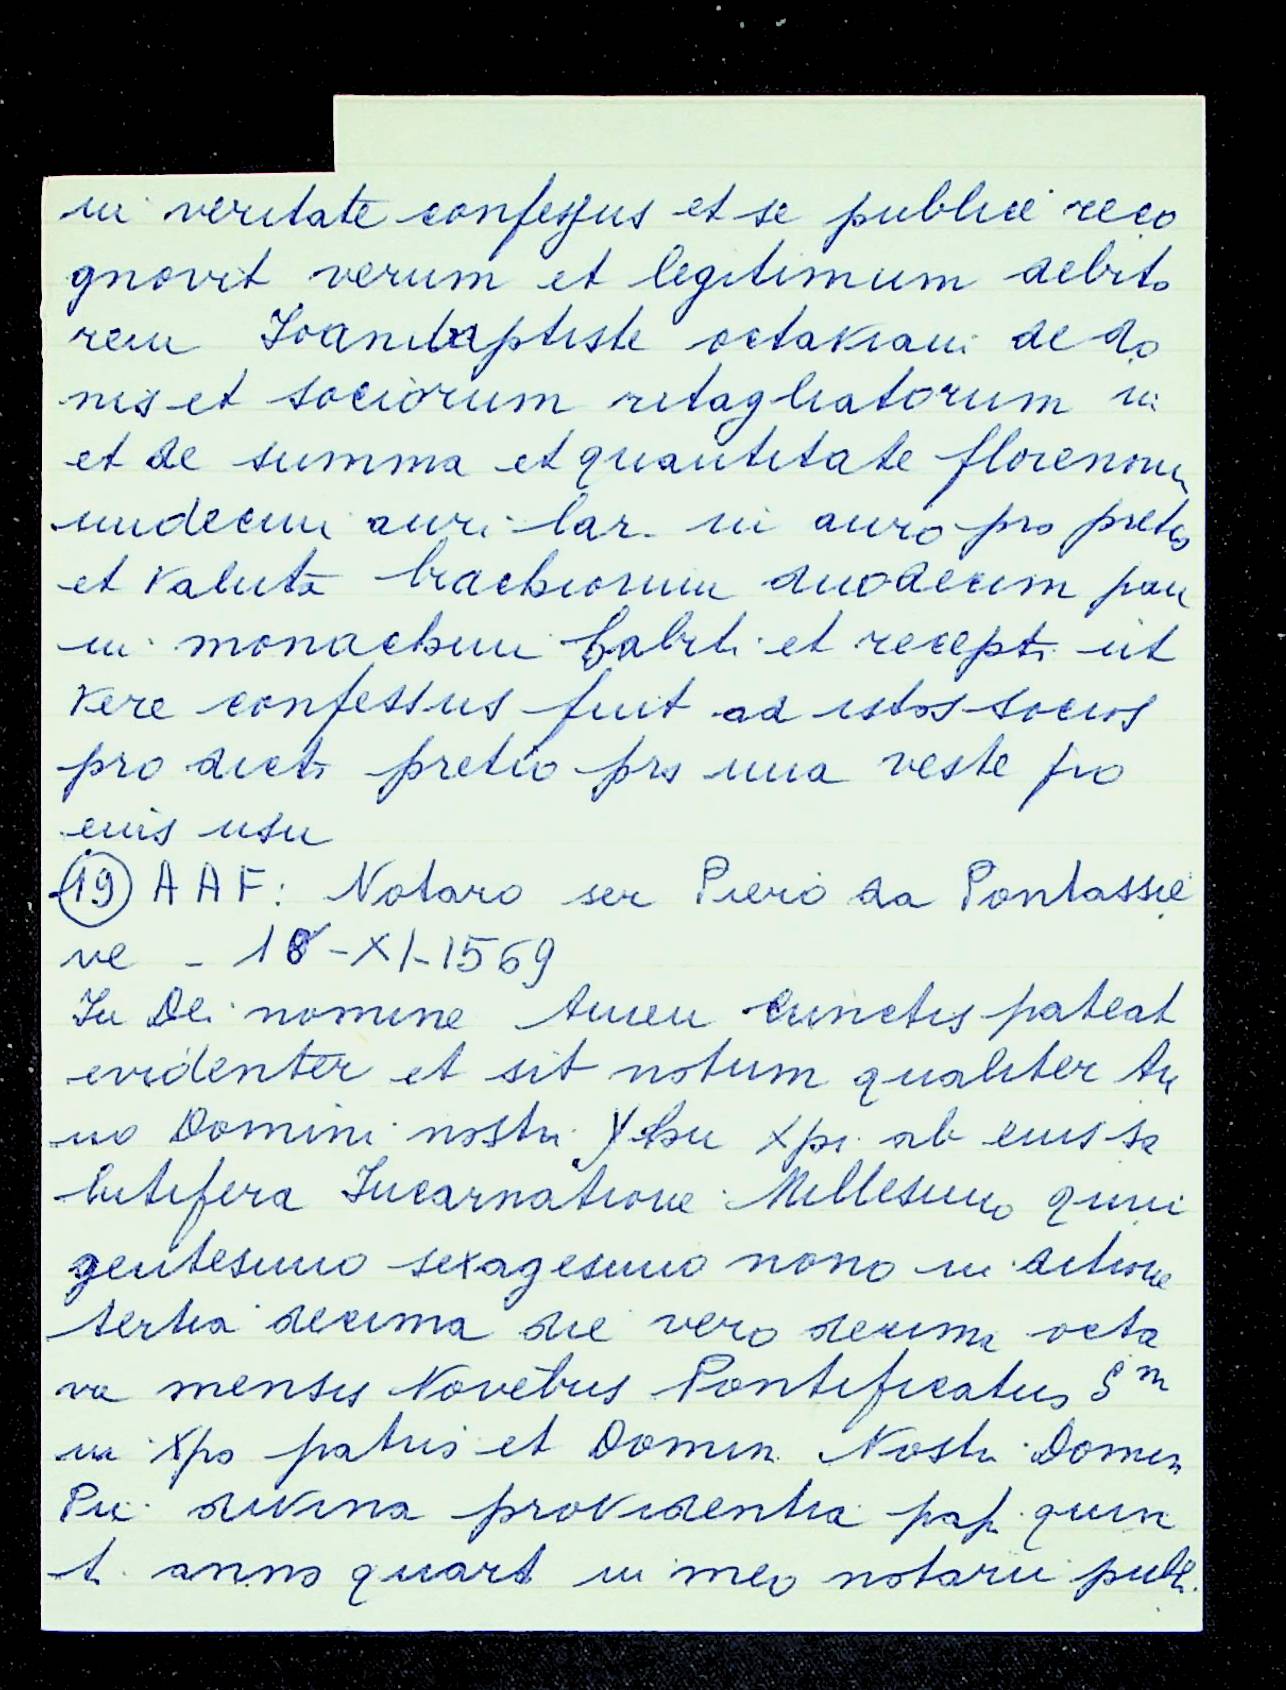 in veritate confessus et se publice reco
gnovit verum et legitimum debito
rem Ioanibaptiste octaviani de do
nis et sociorum ritagliatorum in
et de summa et quantitate florenorum
undecim auri lar. in auro pro pretio
et valuta brachiorum duodecim pan
ni monachini habiti et recepti ut
vere confessus fuit ad istos socios
pro dicto pretio pro una veste pro
eius usu
(19) AAF: Notaro ser Piero da Pontassie
ve - 18-XI-1569
In Dei nomine Amen Cunctis pateat
evidenter et sit notum qualiter An
no Domini nostri Yhu Xpi ab eius sa
lutifera Incarnatione Millesimo quin
gentesimo sexagesimo nono in ditione
tertia decima die vero decima octa
va mensis Novēbris Pontificatus Sm
in Xpo patris et Domin. Nostri Domin
Pii divina providentia pap. quin
ti anno quarto in meo notarii publi.